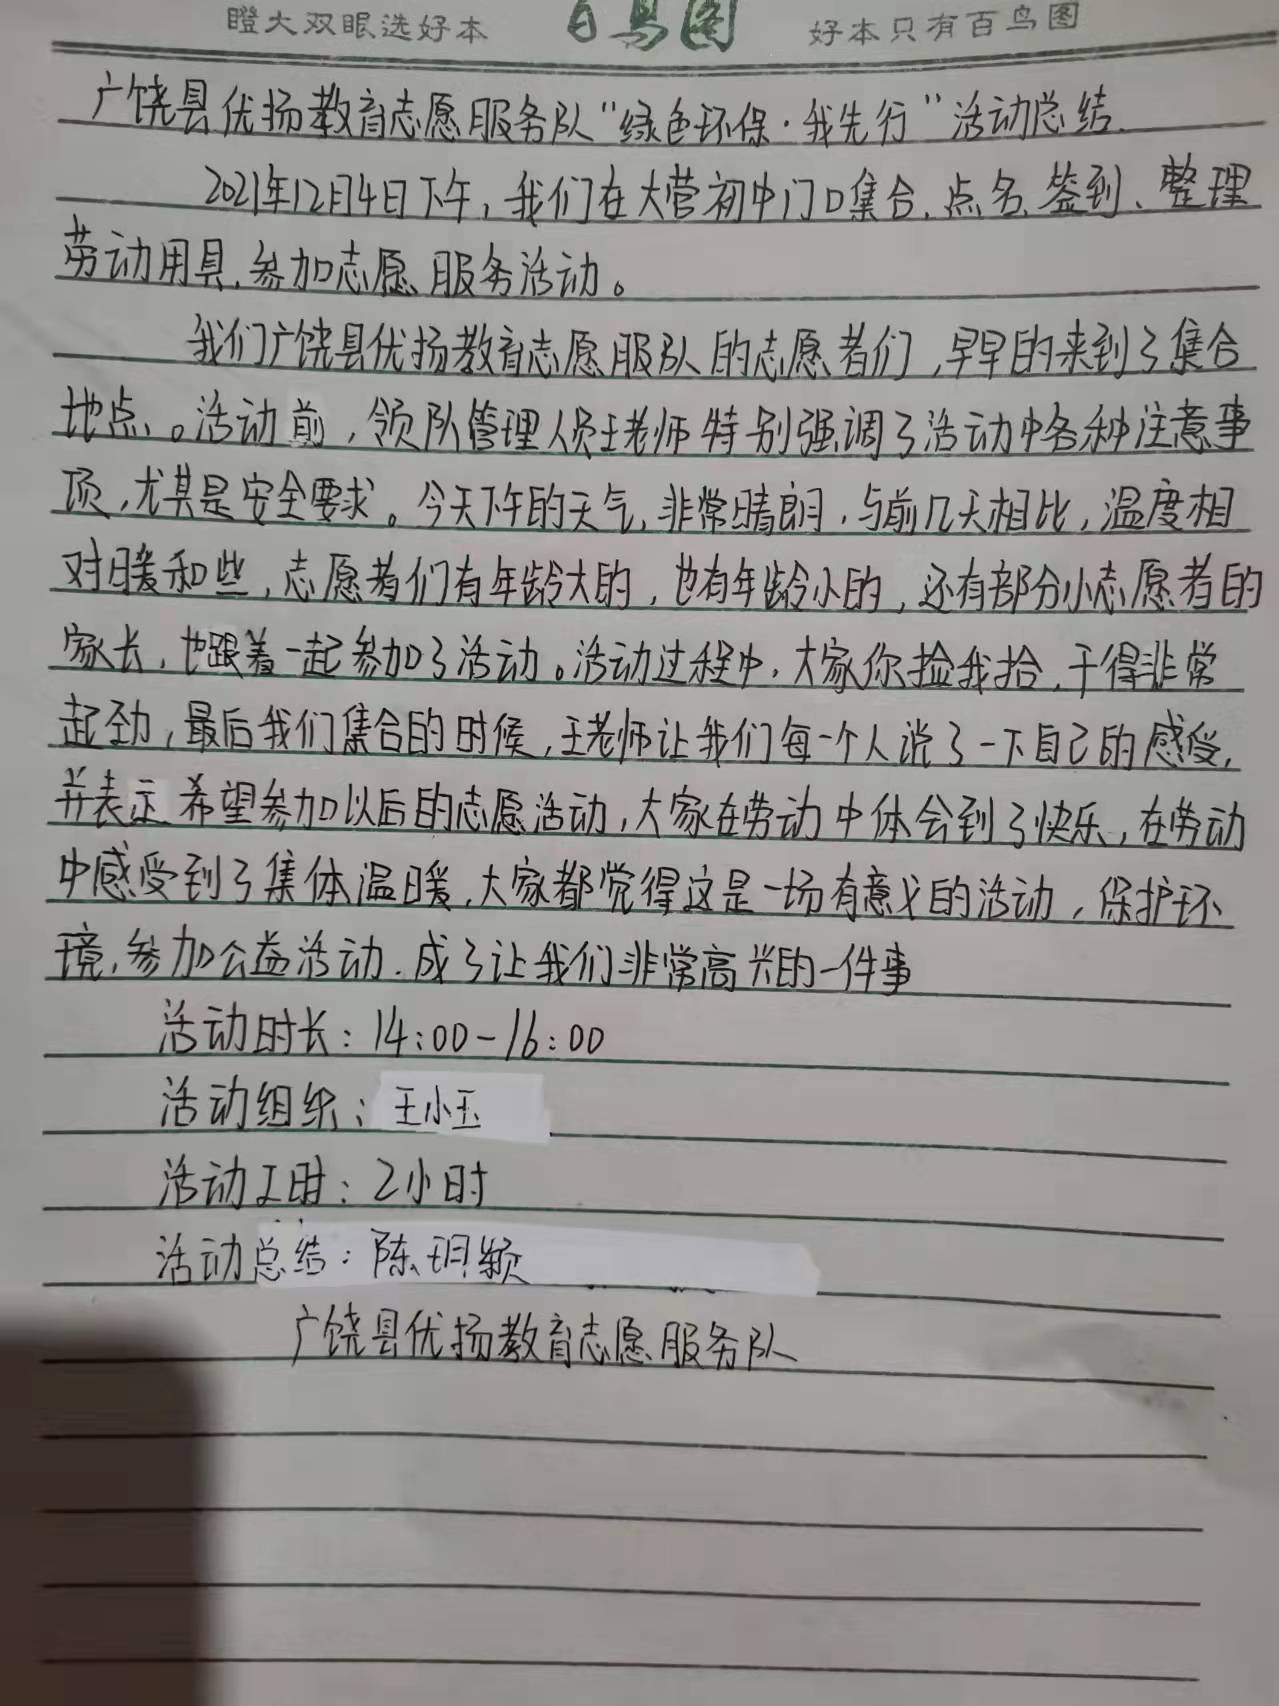 瞪大双眼选好本 百鸟图 好本只有百鸟图
广饶县优扬教育志愿服务队“绿色环保·我先行”活动总结.
2021年12月4日下午,我们在大营初中门口集合、点名、签到、整理
劳动用具,参加志愿服务活动。
我们广饶县优扬教育志愿服队的志愿者们,早早的来到了集合
地点。活动前,领队管理人员王老师特别强调了活动中各种注意事
项,尤其是安全要求。今天下午的天气,非常晴朗,与前几天相比,温度相
对暖和些,志愿者们有年龄大的,也有年龄小的,还有部分小志愿者的
家长,也跟着一起参加了活动。活动过程中,大家你捡我拾,干得非常
起劲,最后我们集合的时候,王老师让我们每一个人说了一下自己的感受,
并表示希望参加以后的志愿活动,大家在劳动中体会到了快乐,在劳动
中感受到了集体温暖,大家都觉得这是一场有意义的活动,保护环
境,参加公益活动,成了让我们非常高兴的一件事
活动时长:14:00-16:00
活动组织:王小玉
活动工时:2小时
活动总结:陈玥颖
广饶县优扬教育志愿服务队